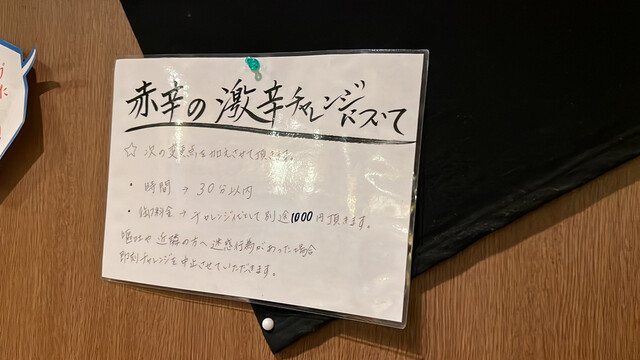 赤辛の激辛チャレンジについて
☆ 次の変更点を加えさせて頂きます。
・時間 → 30分以内
・御料金 → チャレンジ代として別途1000円頂きます。
嘔吐や近隣の方へ迷惑行為があった場合
即刻チャレンジを中止させていただきます。